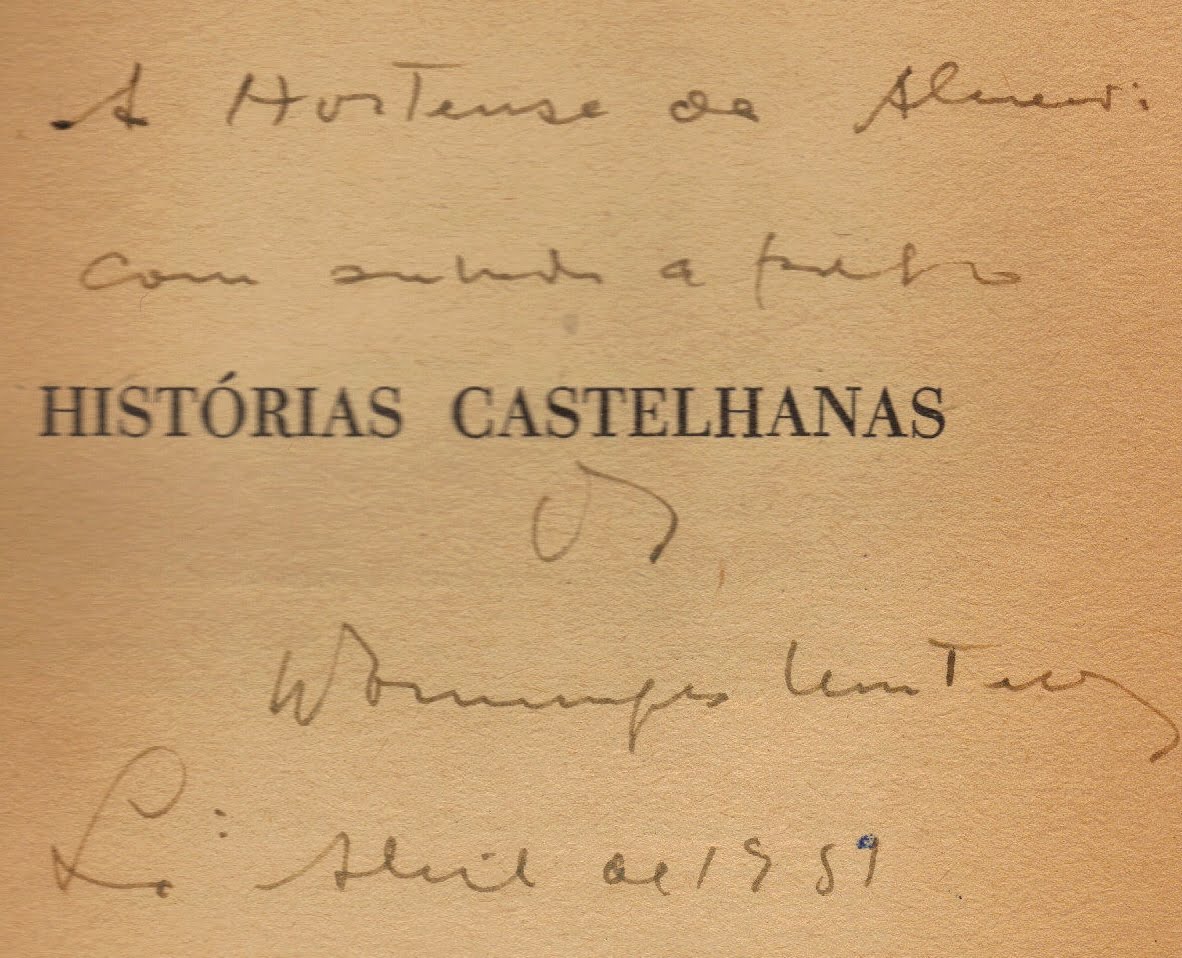 A Hortense de Almeida
com
HISTÓRIAS CASTELHANAS
Of
Domingos Monteiro
Lx: Abril de 1959